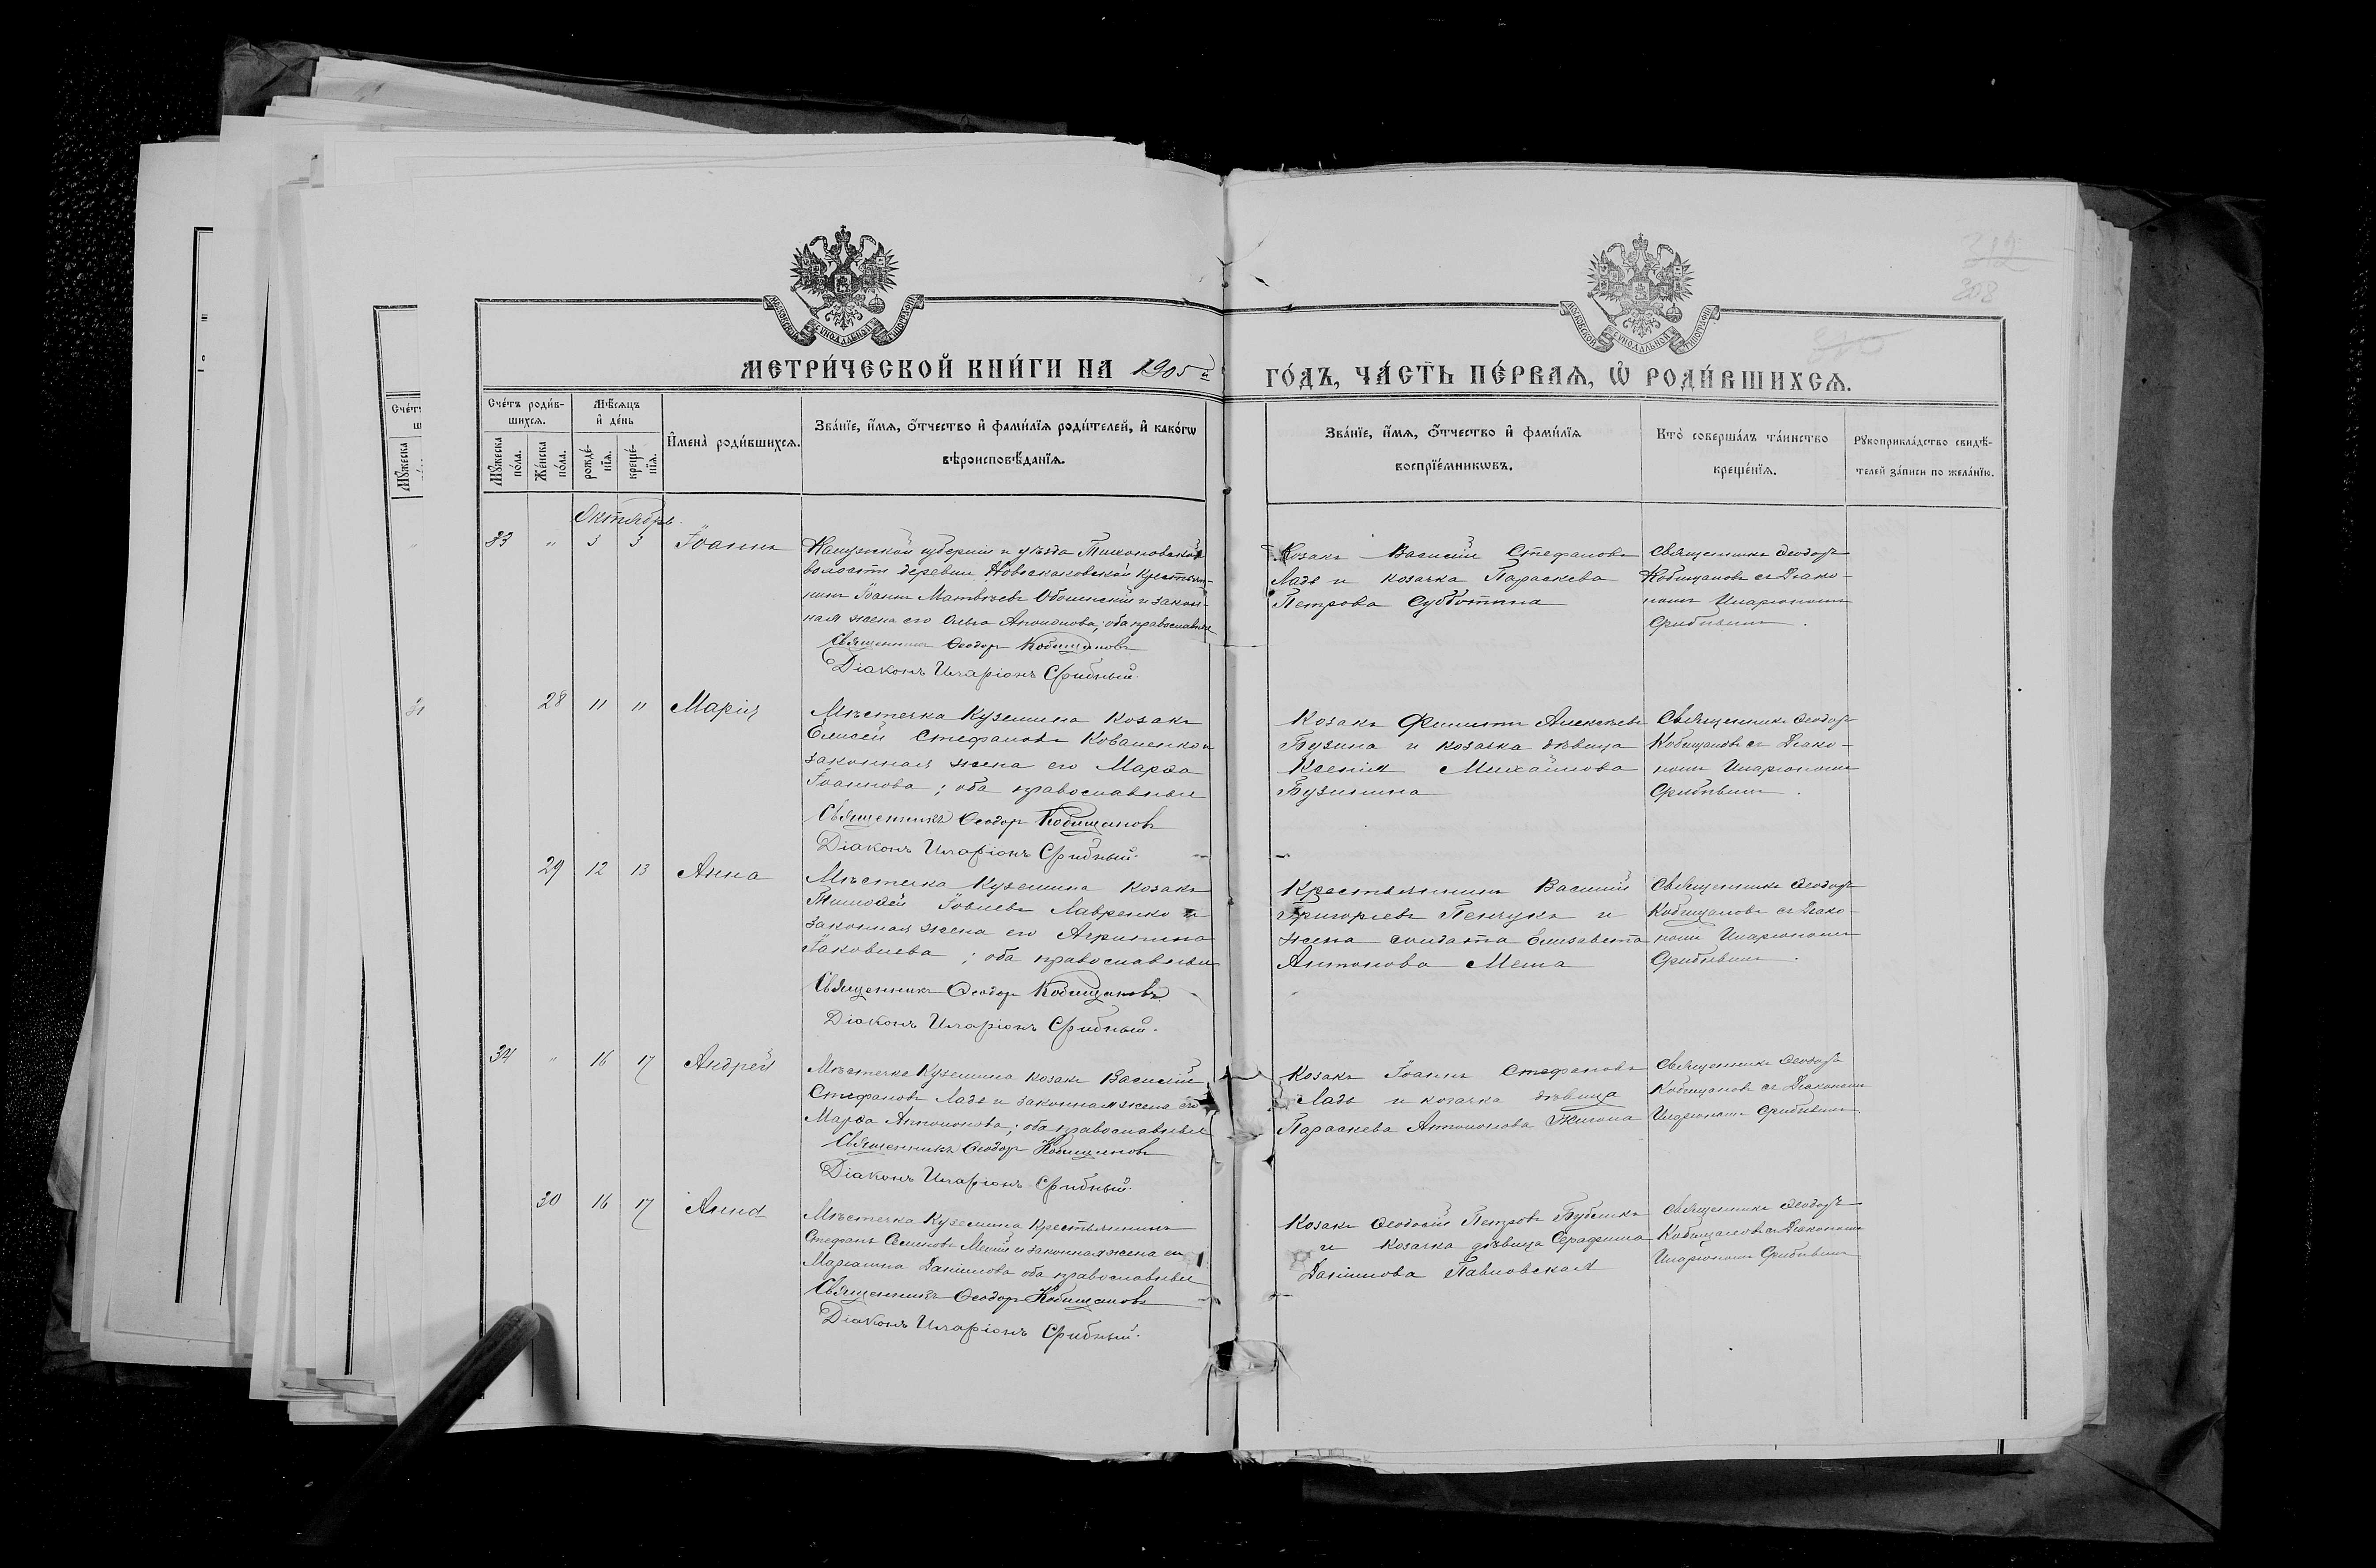 312
303
МОСКОВСКОЙ СѴНОДАЛЬНОЙ ТИПОГРАФІИ
МОСКОВСКОЙ СѴНОДАЛЬНОЙ ТИПОГРАФІИ
МЕТРИ́ЧЕСКОЙ КНИ́ГИ НА 1905й
ГО́ДЪ, ЧА́СТЬ ПЕ́РВАЯ, Ѡ҆ РОДИ́ВШИХСЯ.
Сче́тъ роди́в-
шихсѧ.
Мꙋ́жеска по́ла.
Же́нска по́ла.
Мѣ́сѧцъ
и҆ де́нь
рожде́-
нїѧ.
креще́-
нїѧ.
И҆мена̀ роди́вшихсѧ.
Зва́нїе, и҆́мѧ, ѻ҆́тчество и҆ фами́лїѧ роди́телей, и҆ како́гѡ
вѣроисповѣ́данїѧ.
Зва́нїе, и҆́мѧ, ѻ҆́тчество и҆ фами́лїѧ
воспрїе́мникѡвъ.
Кто̀ соверша́лъ та́инство
креще́нїѧ.
Рꙋкоприкла́дство свидѣ́-
телей за́писи по жела́нїю.
Октябрь
33 " 3 3 Іоаннъ
Калужской губерніи и уѣзда Тихоновской
волости деревни Крестьян-
нинъ Іоаннъ Матвѣевъ и закон-
ная жена его Ольга; оба православные
Священникъ Ѳеодоръ Кобищановъ
Діаконъ Иларіонъ Срибный.
Козакъ Василій Стефановъ
Ладъ и козачка Параскева
Петрова Субботина
Священникъ Ѳеодоръ
Кобищановъ съ Діако-
номъ Иларіономъ
Срибнымъ.
28 11 11 Марія
Мѣстечка Куземина козакъ
Елисей Стефановъ Коваленко и
законная жена его Марѳа
Іоаннова; оба православные
Священникъ Ѳеодоръ Кобищановъ
Діаконъ Иларіонъ Срибный.
Козакъ Филиппъ Алексѣевъ
Бузина и козачка дѣвица
Ксенія Михайлова
Бузинина
Священникъ Ѳеодоръ
Кобищановъ съ Діако-
номъ Иларіономъ
Срибнымъ.
29 12 13 Анна
Мѣстечка Куземина козакъ
Тимоѳей Іовлевъ Лавренко и
законная жена его Агрипина
Іаковлева; оба православные
Священникъ Ѳеодоръ Кобищановъ
Діаконъ Иларіонъ Срибный.
Крестьянинъ Василій
Григорьевъ Пенчукъ и
жена солдата Елисавета
Антонова
Священникъ Ѳеодоръ
Кобищановъ съ Діако-
номъ Иларіономъ
Срибнымъ.
34 " 16 17 Андрей
Мѣстечка Куземина козакъ Василій
Стефановъ Ладъ и законная жена его
Марѳа Антонова; оба православные
Священникъ Ѳеодоръ Кобищановъ
Діаконъ Иларіонъ Срибный.
Козакъ Іоаннъ Стефановъ
Ладъ и козачка дѣвица
Параскева
Священникъ Ѳеодоръ
Кобищановъ съ Діакономъ
Иларіономъ Срибнымъ
30 16 17 Анна
Мѣстечка Куземина крестьянинъ
Стефанъ Семеновъ и законная жена его
Маріамна Даніилова оба православные
Священникъ Ѳеодоръ Кобищановъ
Діаконъ Иларіонъ Срибный.
Козакъ Ѳеодосій Петровъ Бубликъ
и козачка дѣвица Серафима
Даніилова Павловская
Священникъ Ѳеодоръ
Кобищановъ съ Діакономъ
Иларіономъ Срибнымъ